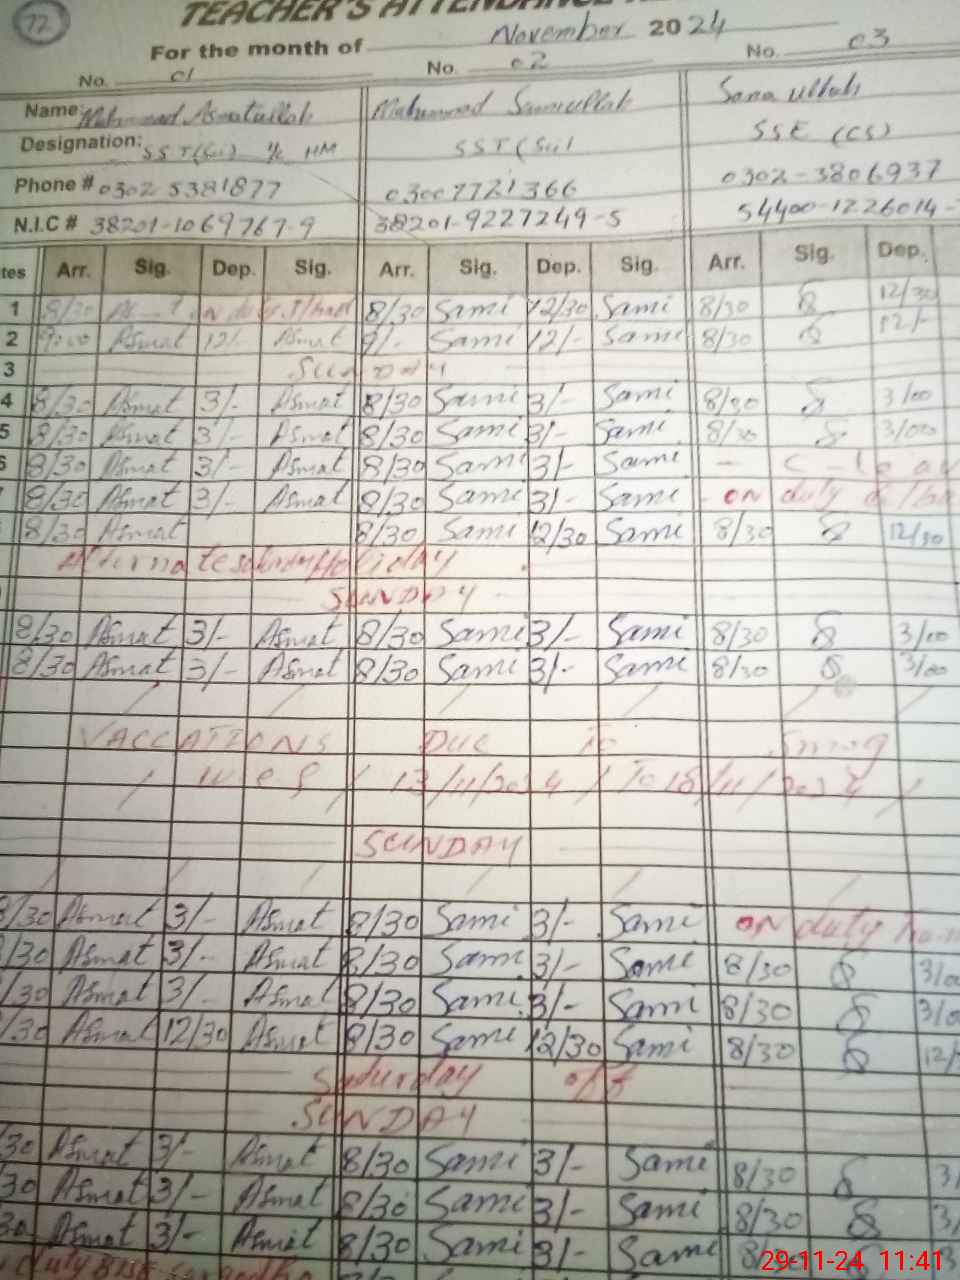 72
TEACHER'S ATTENDANCE
For the month of November 2024
No. 01 No. 02 No. 03
Name: Muhammad Asmatullah Muhammad Samiullah Sana ullah
Designation: SST(Sci) I/c HM SST(Sci) SSE (CS)
Phone # 0302 5381877 03007721366 0302-3806937
N.I.C # 38201-1069767-9 38201-9227249-5 54400-1226014-
tes Arr. Sig. Dep. Sig. Arr. Sig. Dep. Sig. Arr. Sig. Dep.
1 8/30 on duty 8/30 Sami 12/30 Sami 8/30 12/30
2 9:00 Asmat 12/- Asmat 9/- Sami 12/- Sami 8/30 12/-
3 SUNDAY
4 8/30 Asmat 3/- Asmat 8/30 Sami 3/- Sami 8/30 3/00
5 8/30 Asmat 3/- Asmat 8/30 Sami 3/- Sami 8/30 3/00
6 8/30 Asmat 3/- Asmat 8/30 Sami 3/- Sami - C-leav
7 8/30 Asmat 3/- Asmat 8/30 Sami 3/- Sami - on duty
8/30 Asmat 8/30 Sami 12/30 Sami 8/30 12/30
SUNDAY
8/30 Asmat 3/- Asmat 8/30 Sami 3/- Sami 8/30 3/00
8/30 Asmat 3/- Asmat 8/30 Sami 3/- Sami 8/30 3/00
VACCATIONS DUE To Smog
/ WES / 13/11/2024 / To 18/11/2024 /
SUNDAY
8/30 Asmat 3/- Asmat 8/30 Sami 3/- Sami ON duty
/30 Asmat 3/- Asmat 8/30 Sami 3/- Sami 8/30 3/00
/30 Asmat 3/- Asmat 8/30 Sami 3/- Sami 8/30 3/00
/30 Asmat 12/30 Asmat 8/30 Sami 12/30 Sami 8/30 12/
Saturday off
SUNDAY
30 Asmat 3/- Asmat 8/30 Sami 3/- Sami 8/30 3/
30 Asmat 3/- Asmat 8/30 Sami 3/- Sami 8/30 3/
30 Asmat 3/- Asmat 8/30 Sami 3/- Sami 8/30
29-11-24, 11:41